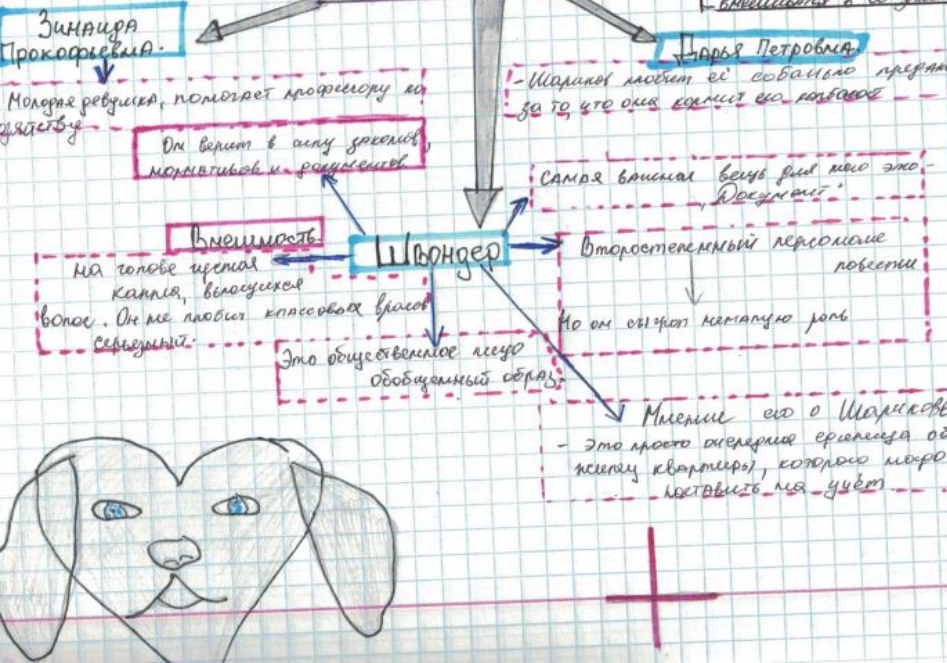 Зинаида
Прокофьевна.
Дарья Петровна.
Молодая девушка, помогает профессору по
- Шариков любит её собачьей
за то, что она кормит его колбасой
Он верит в силу законов,
нормативов и документов
Самая важная вещь для него это -
„Документ"
Внешность
Швондер
На голове густая
копна, вьющихся
волос. Он не любит классовых врагов
серьёзный.
Второстепенный персонаж
повести
Но он сыграл немалую роль
Это общественное лицо
обобщенный образ.
Мнение его о Шарикове
- Это просто очередная единица
жилец квартиры, которого надо
поставить на учёт